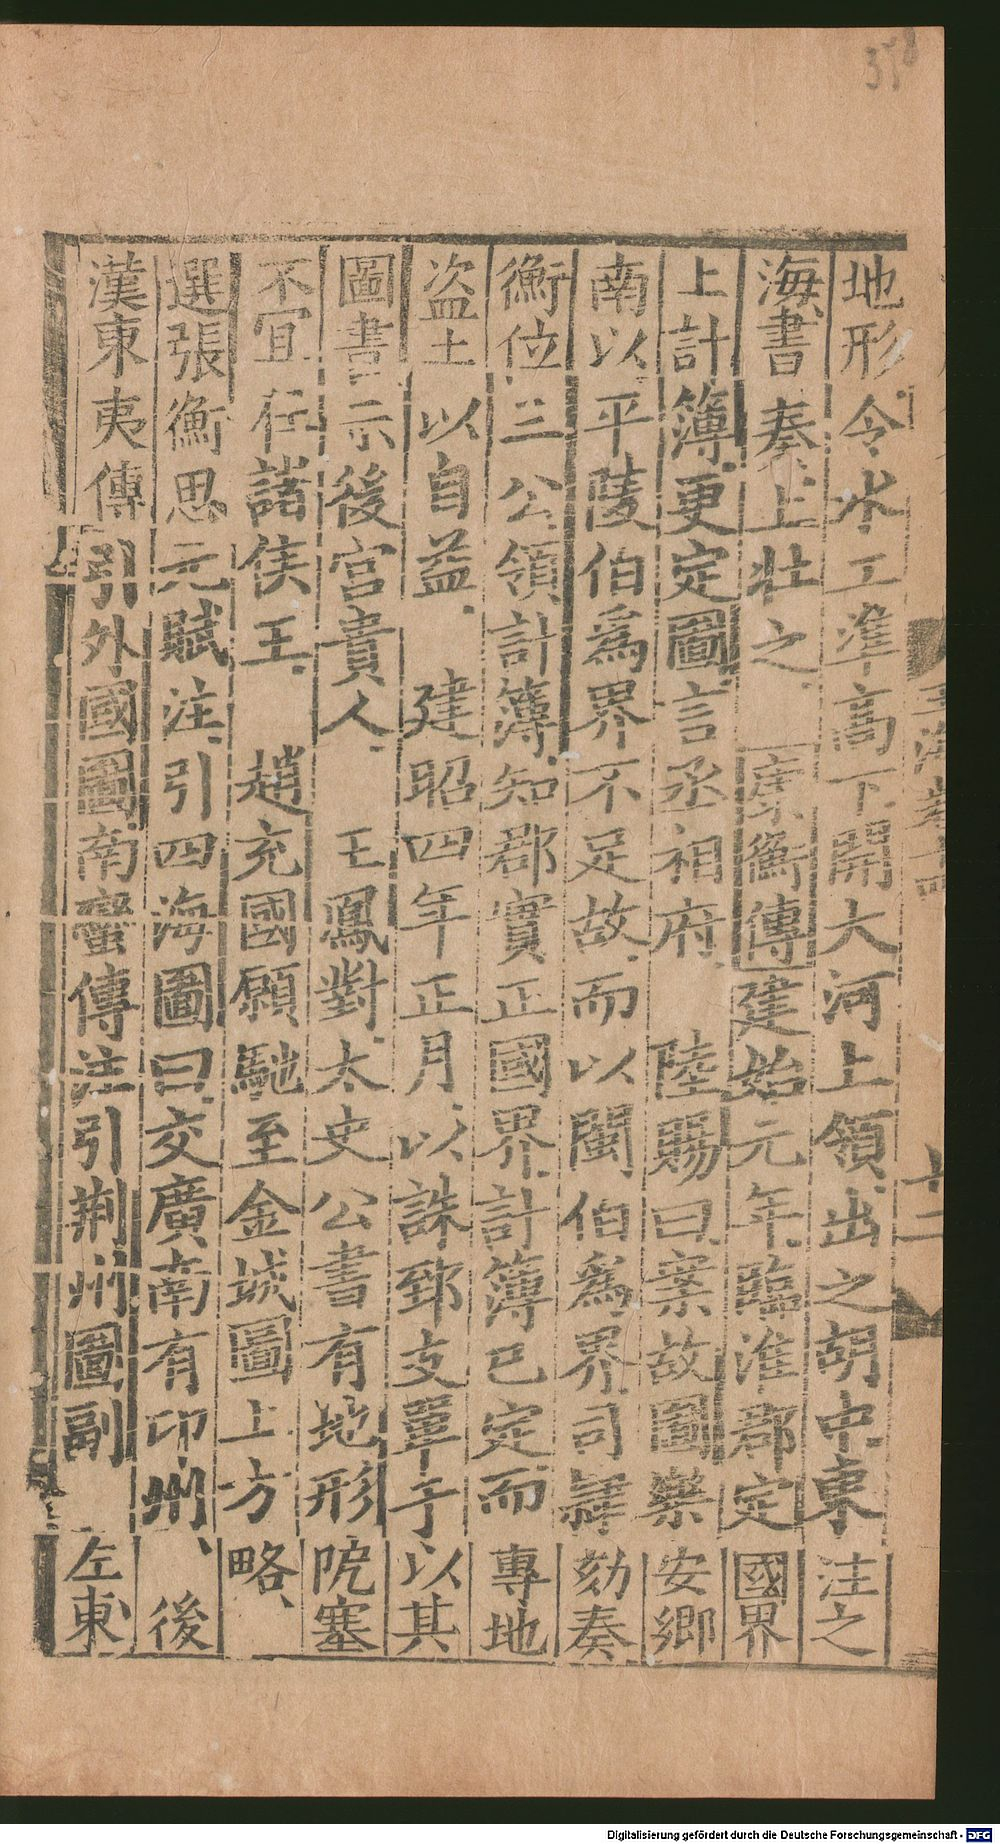 地形令水工準高下開大河上領出之胡中東注之
海書奏上壯之匡衡傳建始元年臨淮郡定國界
上計簿更定圖言丞相府　陸賜曰案故圖樂安鄉
南以平陵伯爲界不足故而以閩伯爲界司隸劾奏
衡位三公領計簿知郡實正國界計簿已定而專地
盜土以自益　建昭四年正月以誅郅支單于以其
圖書示後宮貴人　王鳳對太史公書有地形阸塞
不宜在諸侯王　趙充國願馳至金城圖上方略
選張衡思元賦注引四海圖曰交廣南有卭州　後
漢東夷傳引外國圖南蠻傳注引荆州圖副　左東
十二
Digitalisierung gefördert durch die Deutsche Forschungsgemeinschaft - DFG